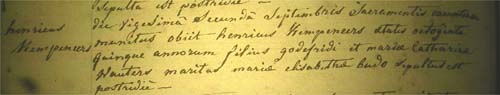 Sepulta est postridie —
henricus
Wempeneers
die vigesima secunda Septembris Sacramentis
munitus obiit henricus Wempeneers ætatis octoginta
quinque annorum filius godefridi et mariæ Catharinæ
Wauters maritus mariæ elisabethæ budo sepultus est
postridie —